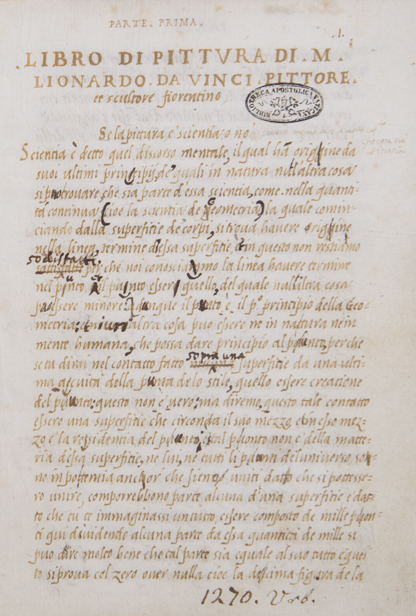 PARTE. PRIMA.
.1.
LIBRO DI PITTVRA DI. M.
LIONARDO. DA VINCI. PITTORE.
et scultore fiorentino
Se la pittura è scientia o no
Scientia è detto quel discorso mentale, il qual hà origine da
suoi ultimi principij, de' quali in natura null'altra cosa
si può trovare che sia parte d'essa scientia, come nella quanti
tà continua (cioè la scientia de Geometria) la quale comin-
ciando dalla superfitie de corpi, si trova havere origine
nella linea, termine d'essa superfitie et in questo non restiamo
sodisfatti.
perche noi conosciamo la linea havere termine
nel punto, il punto essere quello, del quale null'altra cosa
pò essere minore. Dunque il punto è il p.º principio della Geo-
metria, et niuna altra cosa può essere ne in natura ne in
mente humana, che possa dare principio al punto, perche
sopra una
se tu dirai nel contatto fatto superfitie da una ulti-
ma acuità della punta de lo stile, quello essere creatione
del punto: questo non è vero, ma diremo, questo tale contatto
essere una superfitie che circonda il suo mezzo, et in esso mez-
zo è la residentia del punto, et tal punto non è della mate-
ria d'essa superfitie, ne lui, ne tutti li punti de l'universo so-
no in potentia anchor che sieno uniti dato che si potesse-
ro unire, comporrebbono parte alcuna d'una superfitie e da-
to che tu te immaginassi un tutto essere composto da mille pon-
ti qui dividendo alcuna parte da essa quantità de mille si
può dire molto bene che tal parte sia equale al suo tutto e que-
sto si prova col zero over nulla cioè la decima figura de la
1270. Urb.
BIBLIOTHECA APOSTOLICA VATICANA